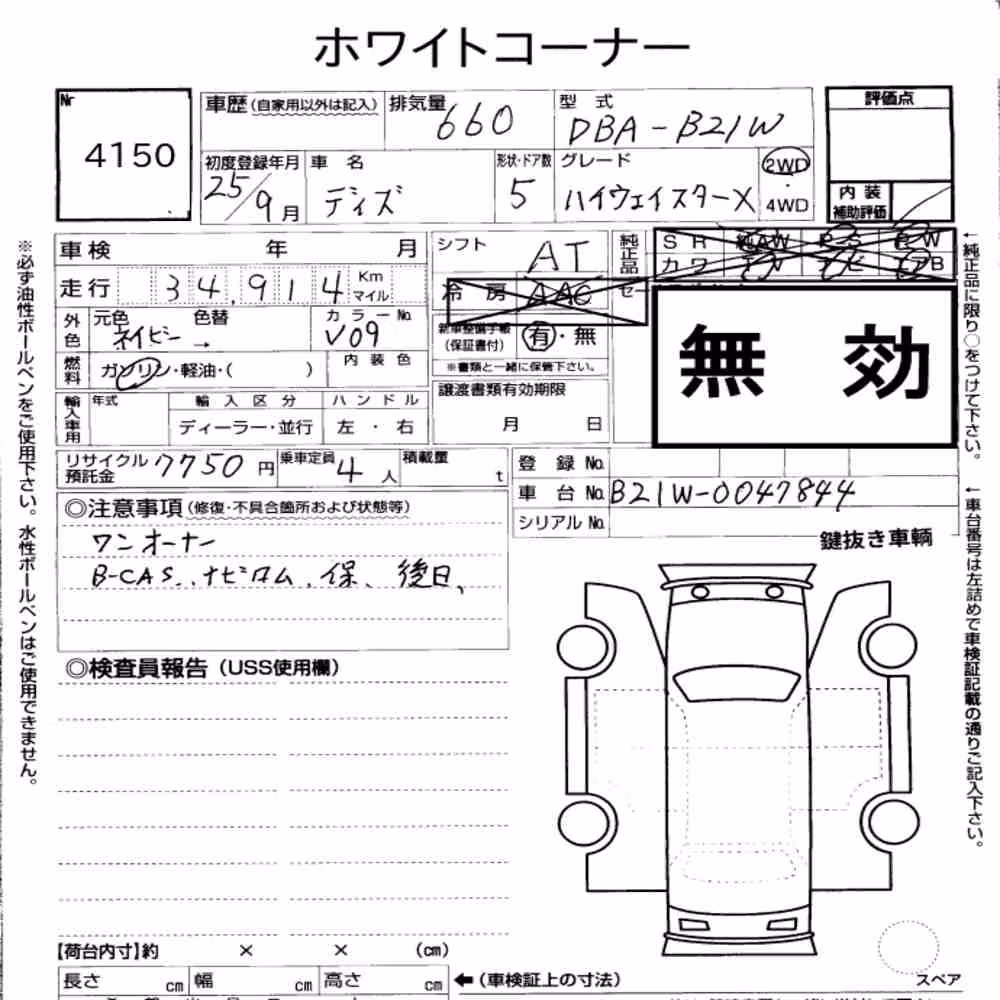 ホワイトコーナー
Nr 4150
車歴(自家用以外は記入) 排気量 660 型式 DBA-B21W 評価点
初度登録年月 25/9月 車名 デイズ 形状・ドア数 5 グレード ハイウェイスターX 2WD・4WD 内装補助評価
車検 年 月 シフト AT 純正品 SR 純AW PS PW
走行 34,914 Km マイル 冷房 AAC カワ TV ナビ エアB
外色 元色 ネイビー → 色替 カラーNo. V09 新車整備手帳(保証書付) 有・無 無効
燃料 ガソリン・軽油・( ) 内装色 ※書類と一緒に保管下さい。
輸入車用 年式 輸入区分 ディーラー・並行 ハンドル 左・右 譲渡書類有効期限 月 日
リサイクル預託金 7750円 乗車定員 4人 積載量 t 登録No.
車台No. B21W-0047844
シリアルNo.
鍵抜き車輌
◎注意事項(修復・不具合箇所および状態等)
ワンオーナー
B-CAS、ナビロム、保、後日、
◎検査員報告(USS使用欄)
【荷台内寸】約 × × (cm)
長さ cm 幅 cm 高さ cm ←(車検証上の寸法)
スペア
※必ず油性ボールペンをご使用下さい。水性ボールペンはご使用できません。
←純正品に限り○をつけて下さい。
←車台番号は左詰めで車検証記載の通りご記入下さい。